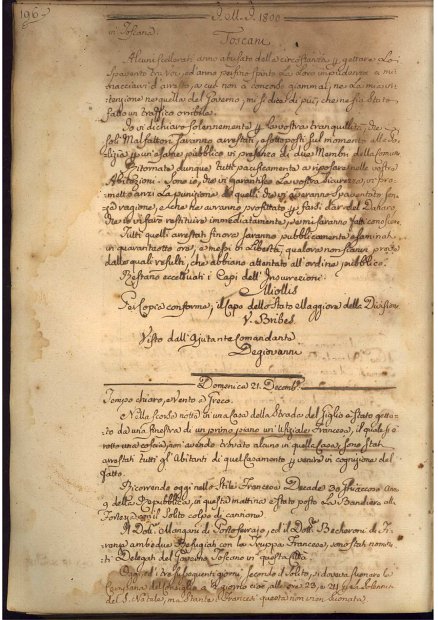 196
D. M. D. 1800
in Toscana
Toscani
Alcuni scellerati anno abusato delle circostanze p gettare lo
spavento tra voi, ed anno persino spinto la loro impudenza a mi
nacciarvi d'arresto, a cui non à concorso giammai, ne la mia in
tenzione ne quella del Governo, mi si dice di più, che ne sia stato
fatto un traffico orribile.
Io vi dichiaro solennemente p la vostra tranquillità, che i
soli Malfattori saranno arrestati, e sottoposti sul momento alla Po
lizia p un'esame pubblico in presenza di due Membri della
Ritornate dunque tutti pacificamente a riposare nelle vostre
Abitazioni. Sono io, che vi garantisco la vostra sicurezza, vi pro
metto anzi la punizione di quelli che vi averanno spaventato senza
ragione, e che ne avranno profittato p farsi dar del Danaro
che io vi farò restituire immediatamente, se mi saranno fatti conoscere.
Tutti quelli arrestati finora saranno pubblicamente esaminati
in quarantotto ore, e messi in libertà, qualora non siano prove
dalle quali resulti, che abbiano attentato all'ordine pubblico.
Restano eccettuati i Capi dell'Insurrezioni.
Miollis
Per Copia conforme, il Capo dello Stato Maggiore della Division
V. Bribes.
Visto dall'Ajutante Comandante
Degiovanni
Domenica 21. Decembr.
Tempo chiaro, e vento a Greco.
Nella scorsa notte in una Casa della Strada del Giglio è stato getta
to da una finestra di un primo piano un Uffiziale Francese, il quale si è
rotto una coscia, non avendo trovato alcuno in quella Casa, sono stati
arrestati tutti gl'Abitanti di quel Casamento p venire in cognizione del
fatto.
Ricorrendo oggi nello Stile Francese Decade 30 Ghiaccioso Ann.
9 della Repubblica, in questa mattina è stato posto la Bandiera alla
Fortezza con il solito colpo di cannone
Il Dott. Mangani di Portoferrajo, ed il Dott. Becheroni di Fi
renze ambedue Refugiati con le Truppe Francesi, sono stati nomi
ti Delegati del Governo Toscano in questa Città
Oggi ed i tre susseguenti giorni secondo il solito, si doveva suonare la
Campana del Consiglio a Giorno cioè alle ore 23, e 24 p la Solenn
del S. Natale, ma stanti i Francesi questa non è con suonata.